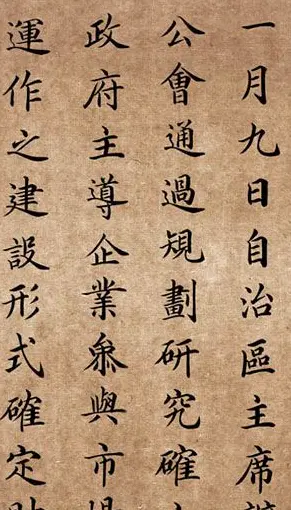 一月九日自治區主席
公會通過規劃研究確
政府主導企業參與市
運作之建設形式確定